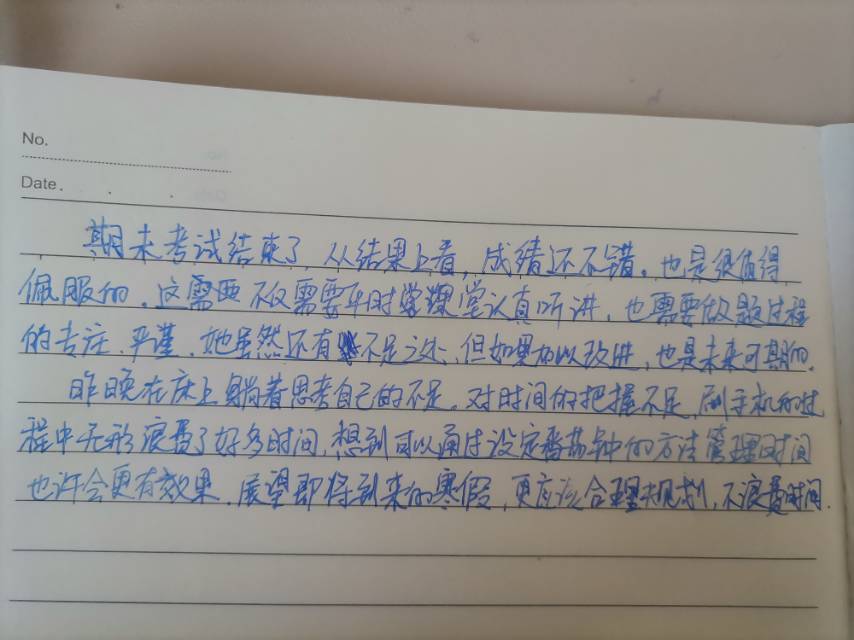 No.
Date.
期末考试结束了,从结果上看,成绩还不错。也是很值得
佩服的。这需要不仅需要平时课堂认真听讲,也需要做题过程
的专注、严谨。她虽然还有不足之处,但如果加以改进,也是未来可期的。
昨晚在床上躺着思考自己的不足。对时间的把握不足,刷手机的过
程中无形浪费了好多时间,想到可以通过设定番茄钟的方法管理时间
也许会更有效果。展望即将到来的寒假,更应该合理规划,不浪费时间.